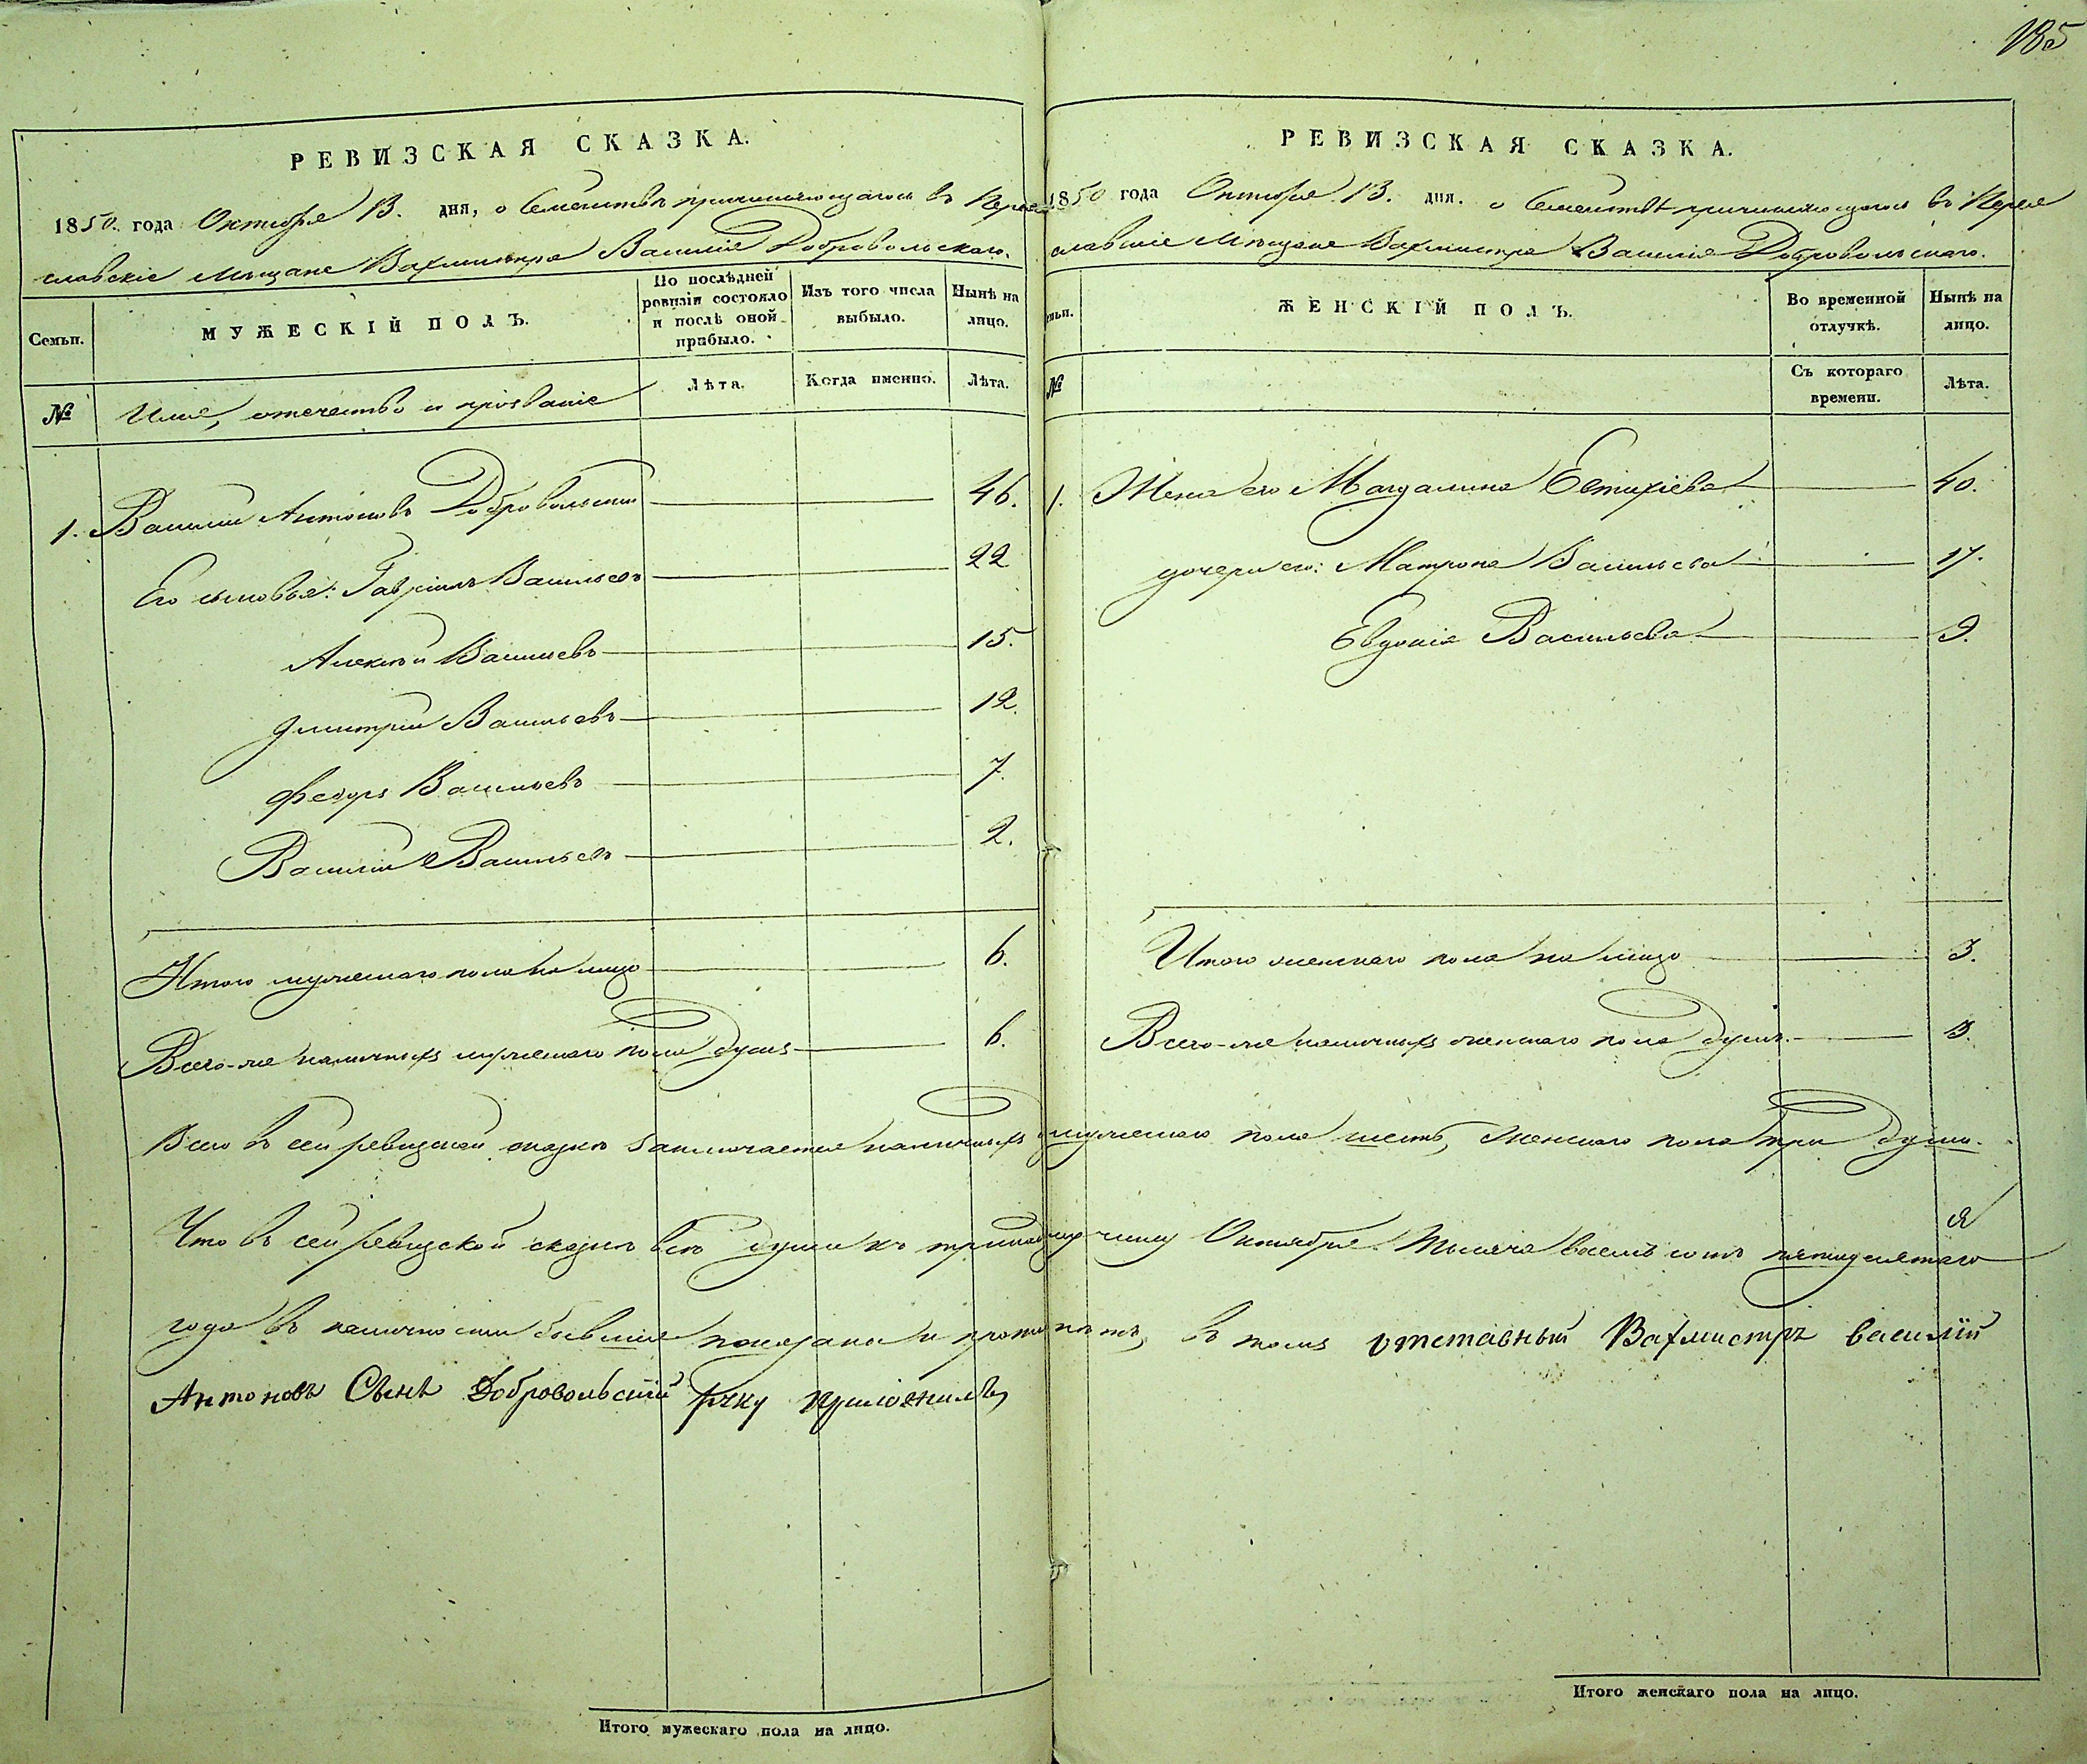 185
РЕВИЗСКАЯ СКАЗКА.
1850. года Октября 13. дня, о Семействѣ причисляющагося въ Перея
славскіе Мѣщане Вахмистра Василія Добровольскаго.
Семьи.
МУЖЕСКІЙ ПОЛЪ.
По послѣдней ревизіи состояло и послѣ оной прибыло.
Изъ того числа выбыло.
Нынѣ на лицо.
№
Имя, отечество и прозваніе
Лѣта.
Когда именно.
Лѣта.
1. Василій Антоновъ Добровольскій 46.
Его сыновья: Гавріилъ Васильевъ 22
Алексѣй Васильевъ 15.
Дмитрій Васильевъ 12.
Федоръ Васильевъ 7.
Василій Васильевъ 2.
Итого мужескаго пола на лицо 6.
Всего-же наличныхъ мужескаго пола душъ 6.
РЕВИЗСКАЯ СКАЗКА.
1850 года Октября 13. дня. о Семействѣ причисляющагося въ Перея
славскіе Мѣщане Вахмистра Василія Добровольскаго.
мьи.
ЖЕНСКІЙ ПОЛЪ.
Во временной отлучкѣ.
Нынѣ на лицо.
№
Съ котораго времени.
Лѣта.
1. Жена его Магдалина Евтихіева 40.
дочери его: Матрона Васильева 17.
Евдокія Васильева 9.
Итого женскаго пола на лицо 3.
Всего-же наличныхъ женскаго пола душъ. 3.
Всего въ сей ревизской сказкѣ заключается наличныхъ мужескаго пола шесть, женскаго пола три души.
Что въ сей ревизской сказкѣ всѣ души къ тринадцатому числу Октября Тысяча восемь сотъ пятидесятаго
года въ наличности бывшія показаны и прописныхъ нѣтъ, въ томъ отставный Вахмистръ василій
Антоновъ Сынъ Добровольскій руку приложилъ
Итого мужескаго пола на лицо.
Итого женскаго пола на лицо.